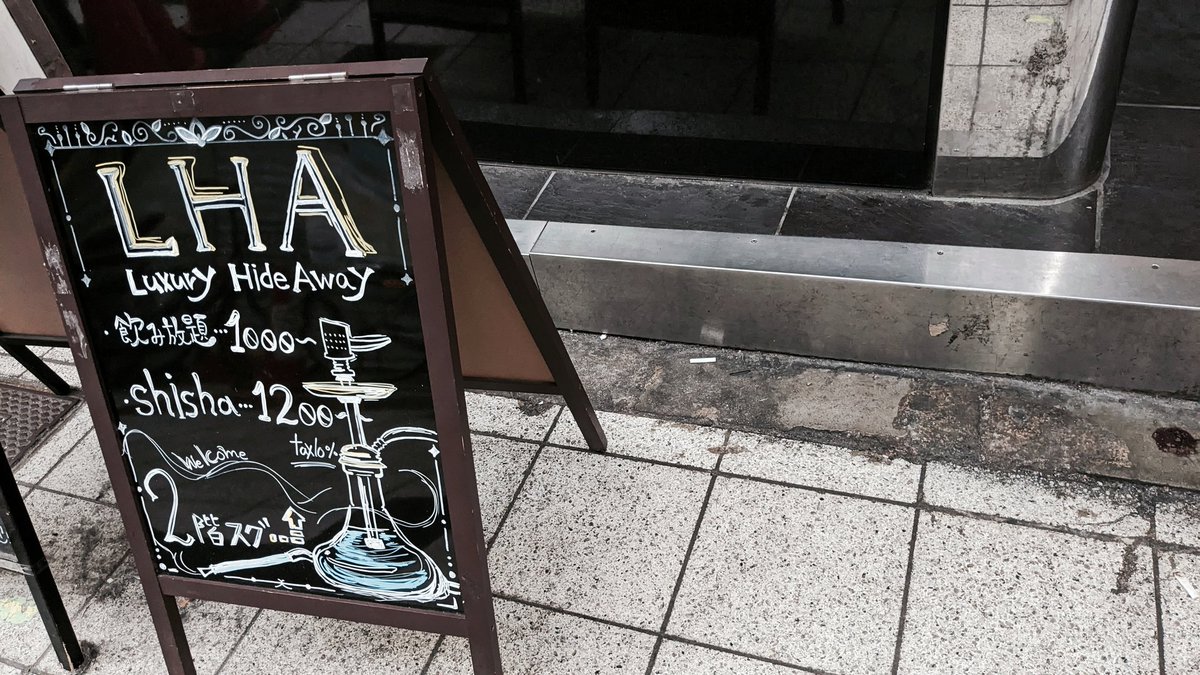 LHA
Luxury Hide Away
・飲み放題…1000~
・Shisha…1200~
Welcome tax10%
2階スグ…